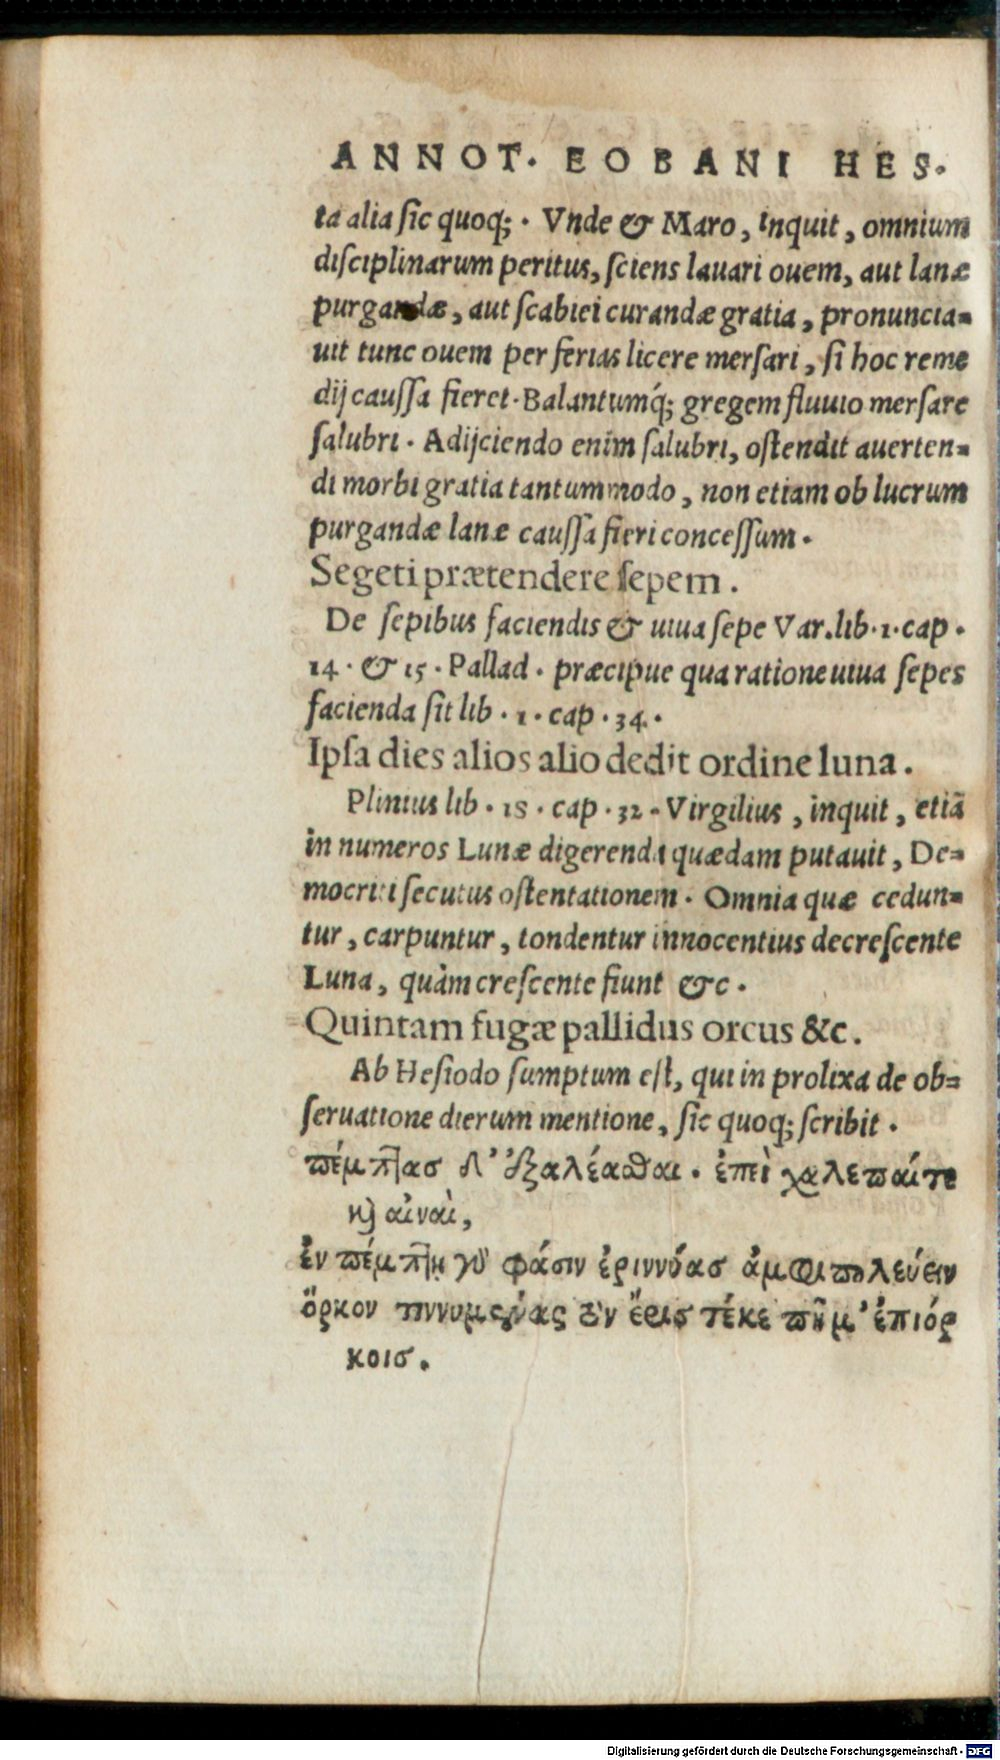 ANNOT. EOBANI HES.
ta alia ſic quoq;. Vnde & Maro, inquit, omnium
diſciplinarum peritus, ſciens lauari ouem, aut lanæ
purgandæ, aut ſcabiei curandæ gratia, pronuncia=
uit tunc ouem per ferias licere merſari, ſi hoc reme
dij cauſſa fieret. Balantumq́; gregem fluuio merſare
ſalubri. Adijciendo enim ſalubri, oſtendit auerten=
di morbi gratia tantummodo, non etiam ob lucrum
purgandæ lanæ cauſſa fieri conceſſum.
Segeti prætendere ſepem.
De ſepibus faciendis & uiua ſepe Var. lib. 1. cap.
14. & 15. Pallad. præcipue qua ratione uiua ſepes
facienda ſit lib. 1. cap. 34.
Ipſa dies alios alio dedit ordine luna.
Plinius lib. 18. cap. 32. Virgilius, inquit, etiã
in numeros Lunæ digerenda quædam putauit, De=
mocriti ſecutus oſtentationem. Omnia quæ cedun=
tur, carpuntur, tondentur innocentius decreſcente
Luna, quàm creſcente fiunt &c.
Quintam fugæ pallidus orcus &c.
Ab Heſiodo ſumptum eſt, qui in prolixa de ob=
ſeruatione dierum mentione, ſic quoq; ſcribit.
πέμπτασ δ' ἐξαλέασθαι. ἐπεὶ χαλεπαί τε
καὶ αἰναὶ,
ἐν πέμπτῃ γὰ φάσιν ἐριννύασ ἀμφιπολεύειν
ὅρκον τιννυμένας τὸν ἔρισ τέκε πῆμ' ἐπιόρ
κοισ.
Digitalisierung gefördert durch die Deutsche Forschungsgemeinschaft - DFG